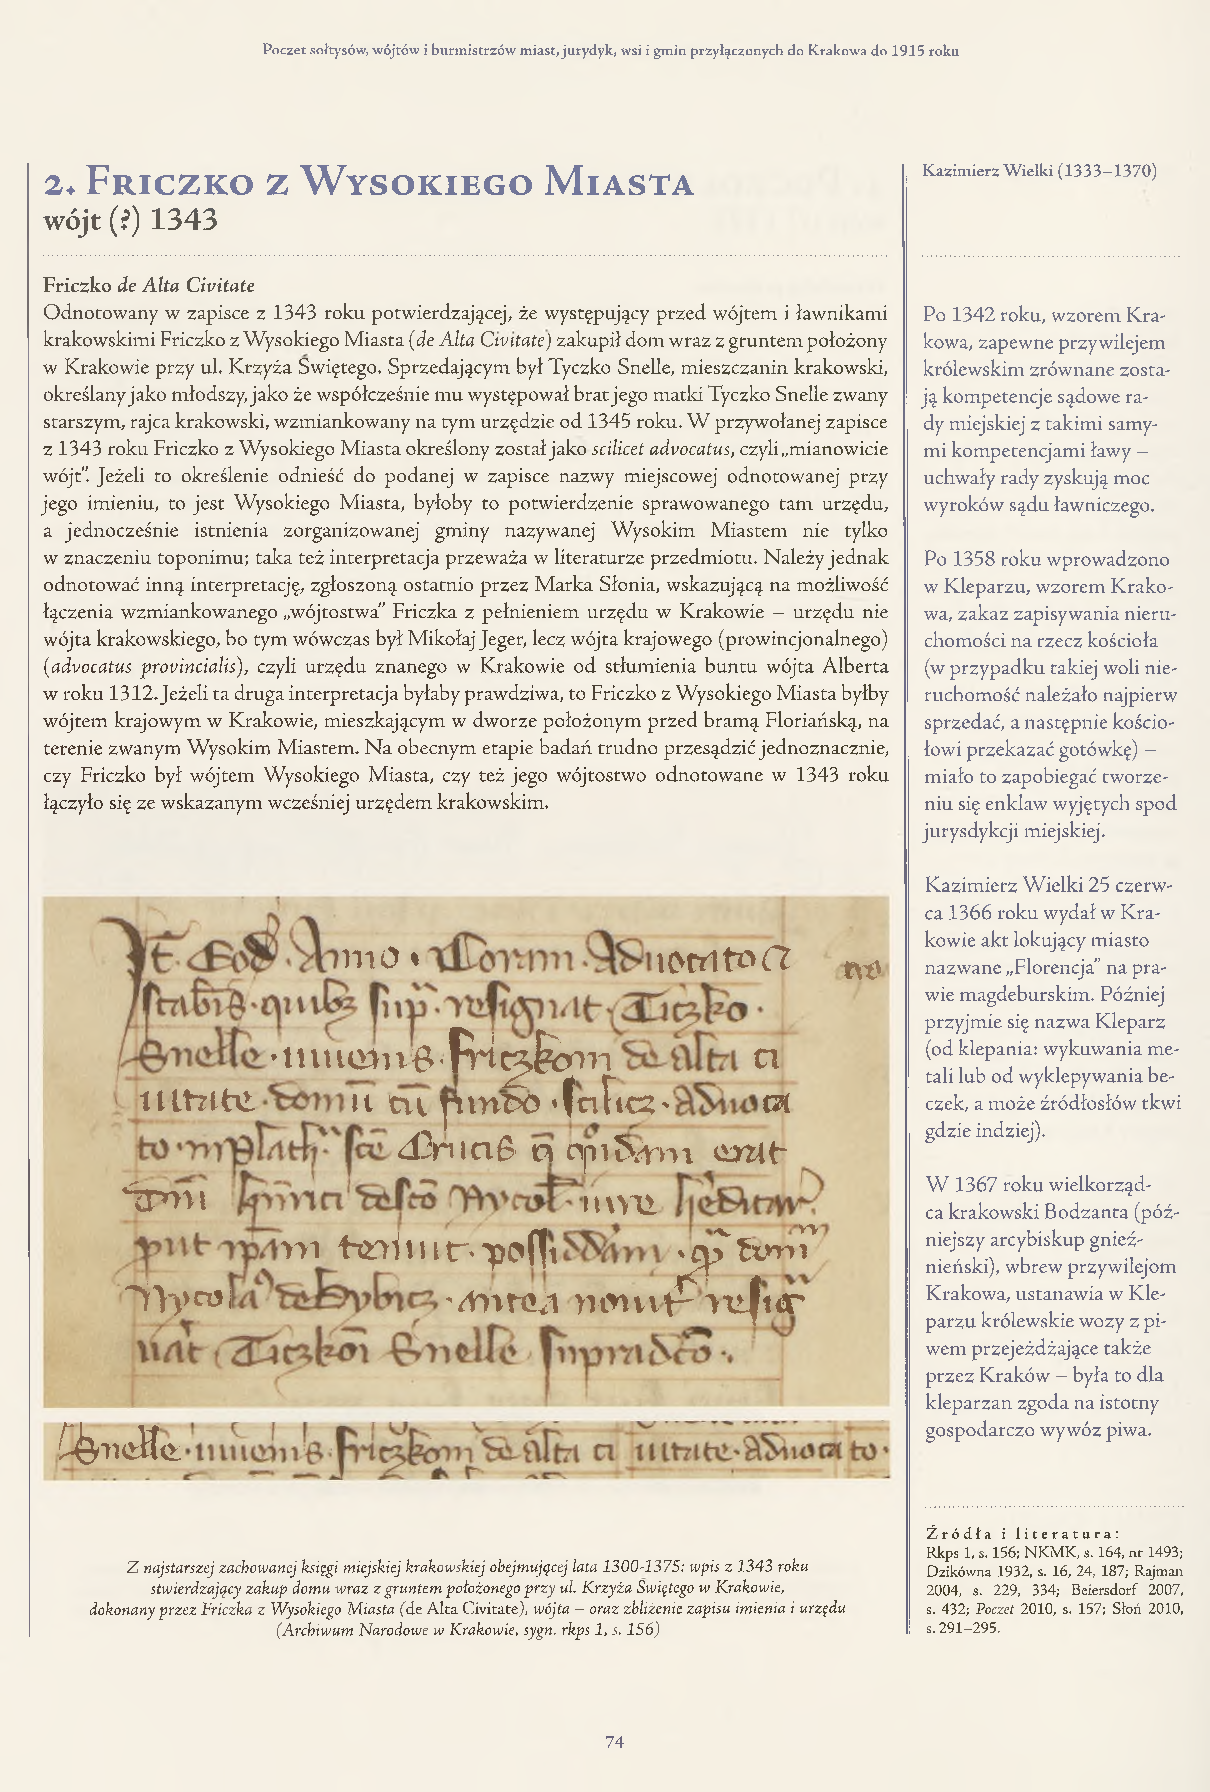 Poczet sołtysów, wójtów i burmistrzów miast, jurydyk, wsi i gmin przyłączonych do Krakowa do 1915 roku
2. Friczko z Wysokiego Miasta
wójt (?) 1343
Friczko de Alta Civitate
Odnotowany w zapisce z 1343 roku potwierdzającej, że występujący przed wójtem i ławnikami
krakowskimi Friczko z Wysokiego Miasta (de Alta Civitate) zakupił dom wraz z gruntem położony
w Krakowie przy ul. Krzyża Świętego. Sprzedającym był Tyczko Snelle, mieszczanin krakowski,
określany jako młodszy, jako że współcześnie mu występował brat jego matki Tyczko Snelle zwany
starszym, rajca krakowski, wzmiankowany na tym urzędzie od 1345 roku. W przywołanej zapisce
z 1343 roku Friczko z Wysokiego Miasta określony został jako scilicet advocatus, czyli „mianowicie
wójt”. Jeżeli to określenie odnieść do podanej w zapisce nazwy miejscowej odnotowanej przy
jego imieniu, to jest Wysokiego Miasta, byłoby to potwierdzenie sprawowanego tam urzędu,
a jednocześnie istnienia zorganizowanej gminy nazywanej Wysokim Miastem nie tylko
w znaczeniu toponimu; taka też interpretacja przeważa w literaturze przedmiotu. Należy jednak
odnotować inną interpretację, zgłoszoną ostatnio przez Marka Słonia, wskazującą na możliwość
łączenia wzmiankowanego „wójtostwa” Friczka z pełnieniem urzędu w Krakowie – urzędu nie
wójta krakowskiego, bo tym wówczas był Mikołaj Jeger, lecz wójta krajowego (prowincjonalnego)
(advocatus provincialis), czyli urzędu znanego w Krakowie od stłumienia buntu wójta Alberta
w roku 1312. Jeżeli ta druga interpretacja byłaby prawdziwa, to Friczko z Wysokiego Miasta byłby
wójtem krajowym w Krakowie, mieszkającym w dworze położonym przed bramą Floriańską, na
terenie zwanym Wysokim Miastem. Na obecnym etapie badań trudno przesądzić jednoznacznie,
czy Friczko był wójtem Wysokiego Miasta, czy też jego wójtostwo odnotowane w 1343 roku
łączyło się ze wskazanym wcześniej urzędem krakowskim.
Z najstarszej zachowanej księgi miejskiej krakowskiej obejmującej lata 1300-1375: wpis z 1343 roku
stwierdzający zakup domu wraz z gruntem położonego przy ul. Krzyża Świętego w Krakowie,
dokonany przez Friczka z Wysokiego Miasta (de Alta Civitate), wójta – oraz zbliżenie zapisu imienia i urzędu
(Archiwum Narodowe w Krakowie, sygn. rkps 1, s. 156)
Kazimierz Wielki (1333–1370)
Po 1342 roku, wzorem Kra-
kowa, zapewne przywilejem
królewskim zrównane zosta-
ją kompetencje sądowe ra-
dy miejskiej z takimi samy-
mi kompetencjami ławy –
uchwały rady zyskują moc
wyroków sądu ławniczego.
Po 1358 roku wprowadzono
w Kleparzu, wzorem Krako-
wa, zakaz zapisywania nieru-
chomości na rzecz kościoła
(w przypadku takiej woli nie-
ruchomość należało najpierw
sprzedać, a następnie kościo-
łowi przekazać gotówkę) –
miało to zapobiegać tworze-
niu się enklaw wyjętych spod
jurysdykcji miejskiej.
Kazimierz Wielki 25 czerw-
ca 1366 roku wydał w Kra-
kowie akt lokujący miasto
nazwane „Florencja” na pra-
wie magdeburskim. Później
przyjmie się nazwa Kleparz
(od klepania: wykuwania me-
tali lub od wyklepywania be-
czek, a może źródłosłów tkwi
gdzie indziej).
W 1367 roku wielkorząd-
ca krakowski Bodzanta (póź-
niejszy arcybiskup gnieź-
nieński), wbrew przywilejom
Krakowa, ustanawia w Kle-
parzu królewskie wozy z pi-
wem przejeżdżające także
przez Kraków – była to dla
kleparzan zgoda na istotny
gospodarczo wywóz piwa.
Źródła i literatura:
Rkps 1, s. 156; NKMK, s. 164, nr 1493;
Dzikówna 1932, s. 16, 24, 187; Rajman
2004, s. 229, 334; Beiersdorf 2007,
s. 432; Poczet 2010, s. 157; Słoń 2010,
s. 291–295.
74